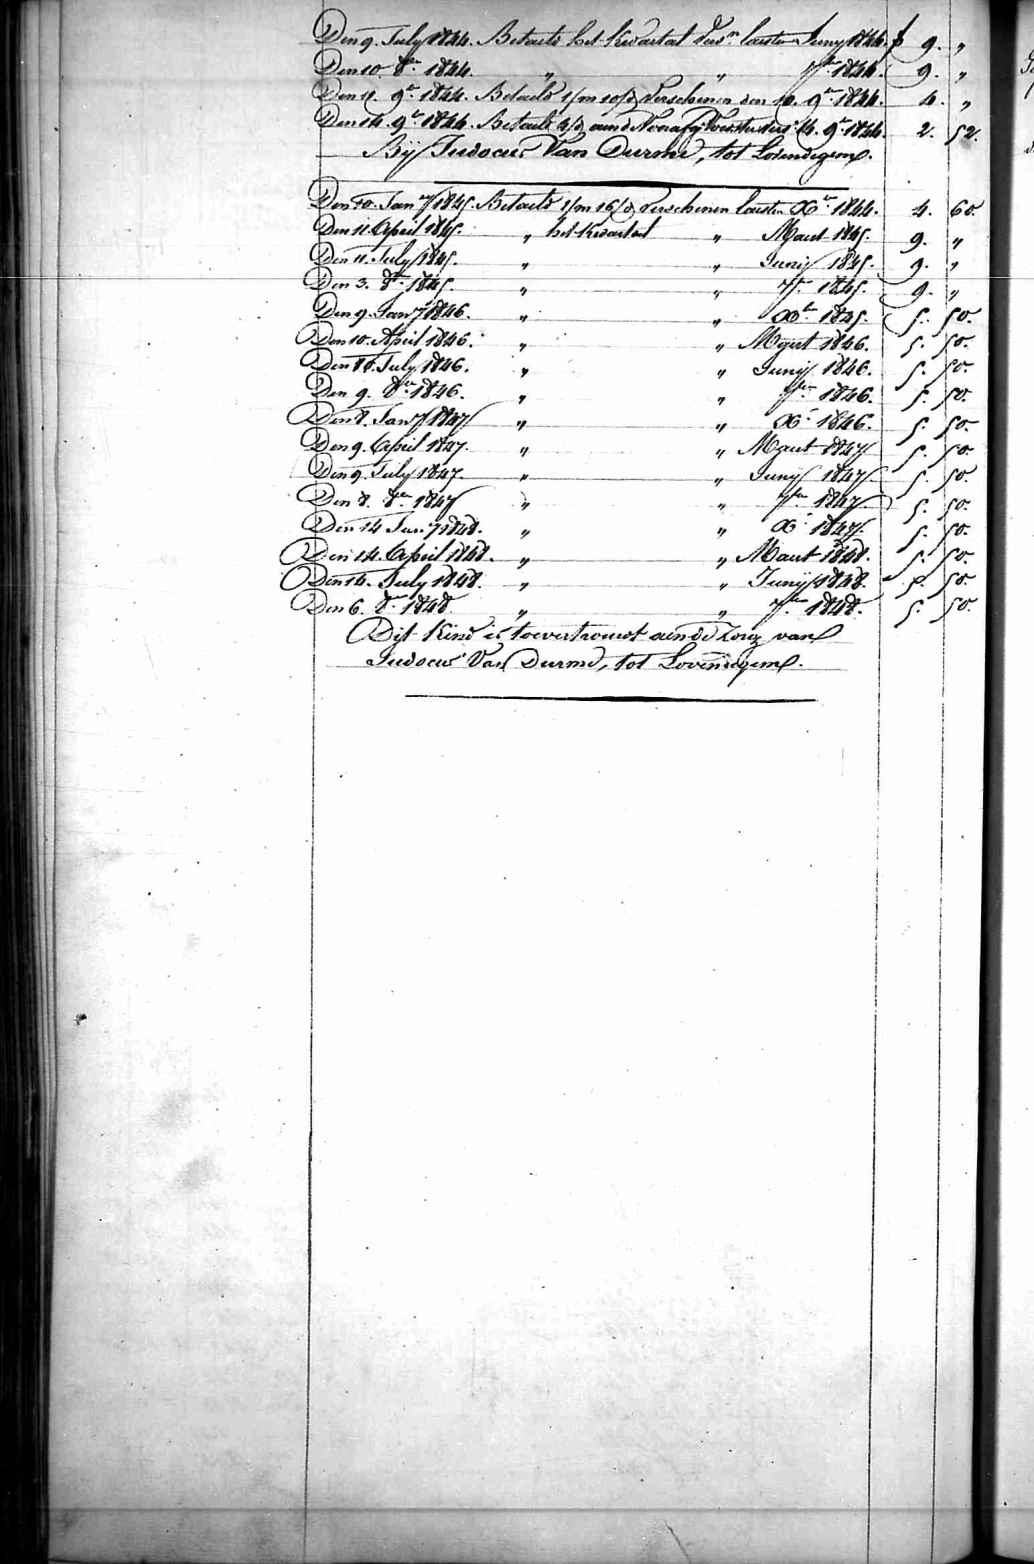 Den 9. July 1844. Betaeld het Kwartal Vers.en laesten Juny 1844. f 9. "
Den 10. 8.er 1844. " " 7.br 1844. 9. "
Den 11. 9.r 1844. Betaeld 1/m 10/d Verschenen den 10. 9.r 1844. 4. "
Den 14. 9.r 1844. Betaeld 4/d aen de 14. 9.r 1844. 2. 52.
Bij Judocus Van Durme, tot Lovendegem.
Den 10. Jan.y 1845. Betaeld 1/m 16/d Verschenen laesten X.er 1844. 4. 60.
Den 11. April 1845. " het Kwartaal " Maert 1845. 9. "
Den 11. July 1845. " " Junij 1845. 9. "
Den 3. 8.er 1845. " " 7.br 1845. 9. "
Den 9. Jan.y 1846. " " X.er 1845. 5. 50.
Den 10. April 1846. " " Maert 1846. 5. 50.
Den 11. July 1846. " " Junij 1846. 5. 50.
Den 9. 8.er 1846. " " 7.br 1846. 5. 50.
Den 8. Jan.y 1847 " " X.r 1846. 5. 50.
Den 9. April 1847. " " Maert 1847 5. 50.
Den 9. July 1847. " " Junij 1847. 5. 50.
Den 8. 8.er 1847 " " 7.br 1847. 5. 50.
Den 14 Jan.y 1848. " " X.r 1847. 5. 50.
Den 14. April 1848. " " Maert 1848. 5. 50.
Den 14. July 1848. " " Junij 1848. 5. 50.
Den 6. 8.er 1848. " " 7.br 1848. 5. 50.
Dit Kind is toevertrouwt aen de zorg van
Judocus Van Durme, tot Lovendegem.